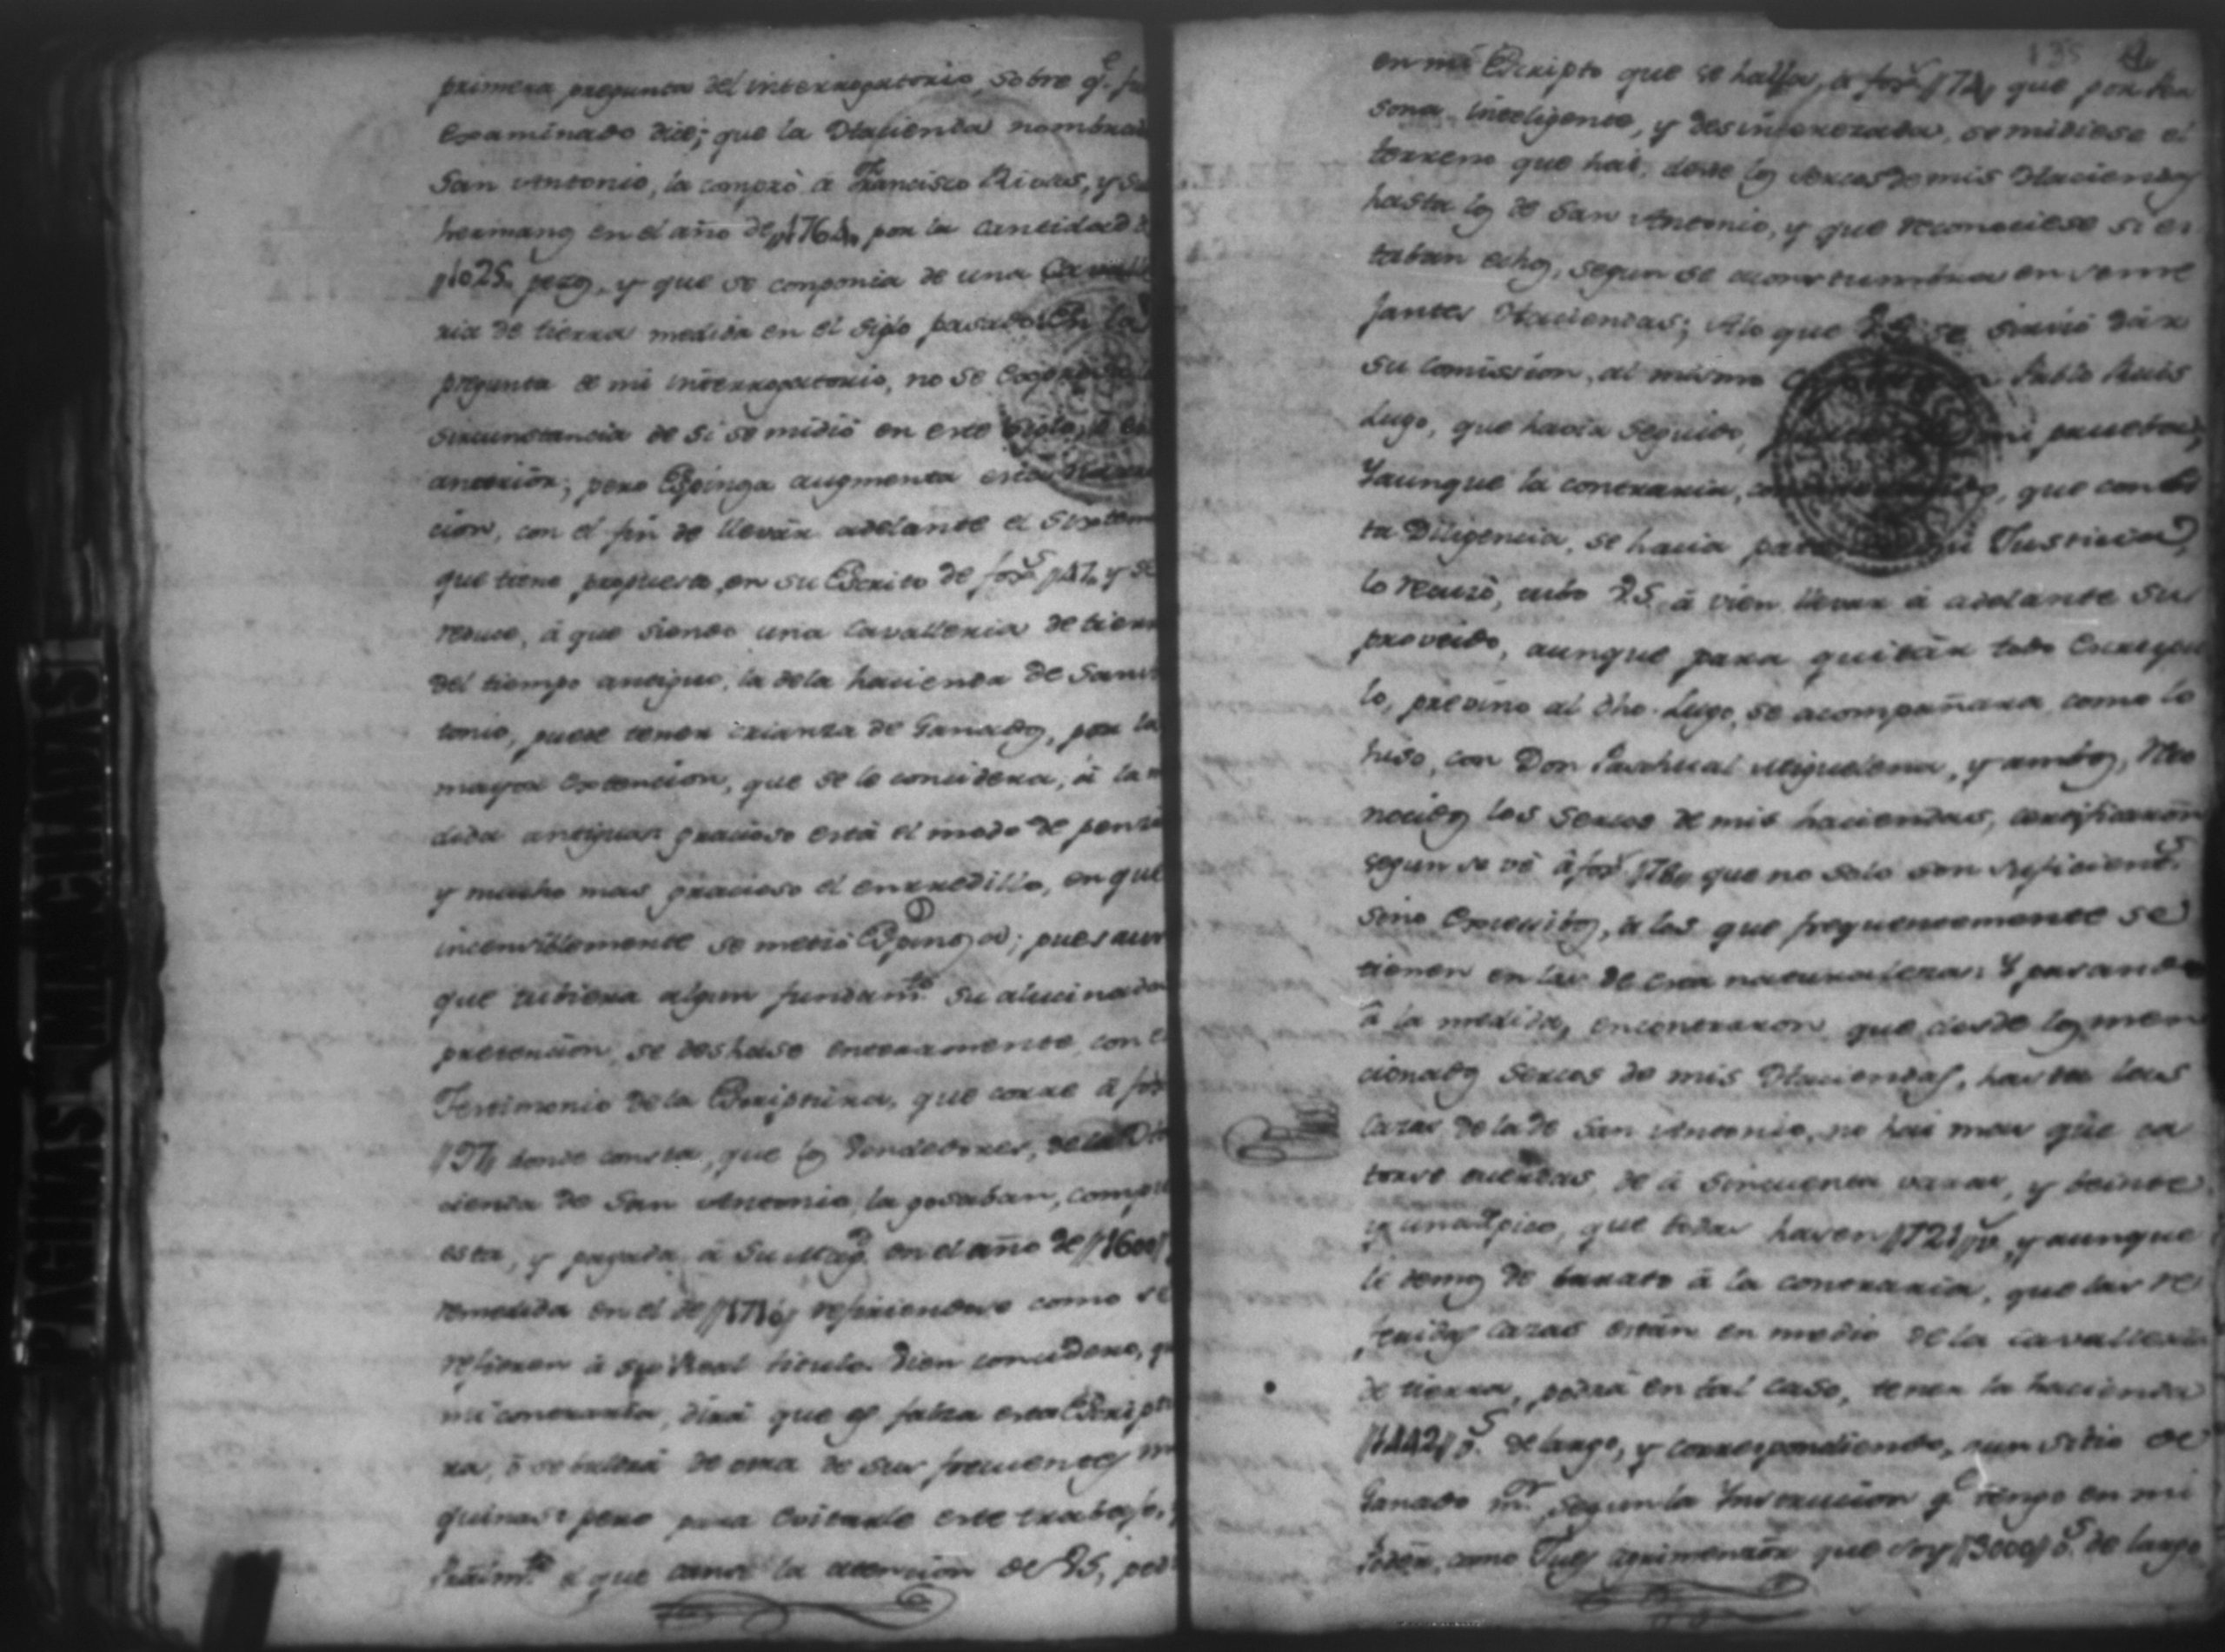 primera pregunta del interrogatorio, sobre q.e fue
examinado dice; que la Hacienda nombrada
San Antonio, la compró á Francisco Rivas, y su
hermanos en el año de 1764, por la cantidad d
1025 pezos, y que se componia de una Cavalle
ria de tierra medida en el siglo pasado. En la
pregunta de mi interrogatorio, no se
sircunstancia de si se midió en este siglo,
anterior; pero Espinga augmenta esta
cion, con el fin de llevár adelante el sistem
que tiene propuesta en su Escrito de foxs 147, y se
reduce, á que siendo una Cavalleria de tierr
del tiempo antiguo, la dela hacienda de San An
tonio, puede tener crianza de Ganados, por la
mayor extencion, que se le concidera, á la m
dida antigua: gracioso está el modo de pensar
y mucho mas gracioso el enrredillo, en que
incenciblemente se metió Espinga; pues aun
que tubiera algun fundam.to su alucinada
pretencion, se deshase enteramente, con el
Testimonio de la Escriptura, que corre á fox
157 donde consta, que los Vendedores, de la Ha
cienda de San Antonio, la gosaban, compu
esta, y pagada á Su Mag.d en el año de 1600
remedida en el de 1716 refiriendose como se
refieren á su Real titulo. Bien concidero, qu
mi contraria, dirá que es falza esta Escriptu
ra, ó se baldrá de otra de sus frecuentes m
quinas: pero para evitarle este trabajo, y
á que canse la atencion de VS, ped
en mi Escripto que se halla, á foxs 172, que por Per
sona inteligente, y desinterezada, se midiese el
terreno que hai, desde los sercos de mis Haciendas
hasta los de San Antonio, y que reconociese si es
taban echos, segun se acostumbra en seme
jantes Haciendas; Alo que VS. se sirvió dár
su comission, al mismo Pablo Ruis
Lugo, que havia seguido, mi prueba;
Yaunque la contraria, que con es
ta Diligencia, se hacia mi Justicia,
lo recusó, tubo VS. á vien llevar á adelante su
proveido, aunque para quitár todo Escrupu
lo, previno al dho. Lugo, se acompañara, como lo
hiso, con Don Paschual Miguelena, y ambos, Reco
nocidos los sercos de mis haciendas, certificarón
segun se vé á fox 176, que no solo son suficientes
sino Excesivos, á los que frequentemente se
tienen en las de esta naturaleza: Y pasando
á la medida, encontraron que desde los men
cionados sercos de mis Haciendas, hasta las
cazas dela de San Antonio, no hai mas que ca
torse cuerdas, de á sincuenta varas, y veinte
y una y pico, que todas hasen 721 v.s, y aunque
le demos de barato á la contraria, que las re
feridas cazas están en medio de la cavalleria
de tierra, podrá en tal caso, tener la hacienda
1442 v.s de largo, y correspondiendo, á un sitio de
Ganado m.r, segun la Ynstruccion q.e tengo en mi
Podér, como Jues agrimensór que soy 3000 v.s de largo